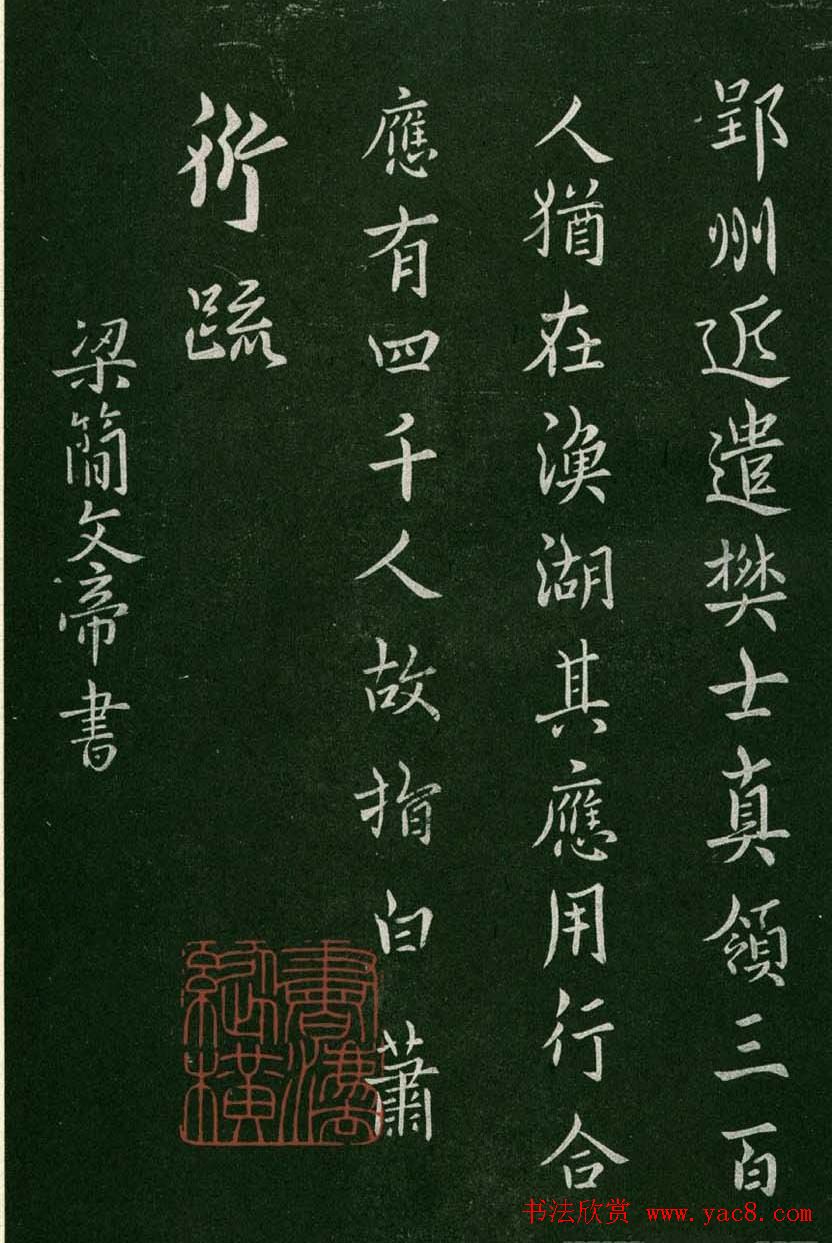 郢州近遣樊士真領三百
人猶在漁湖其應用行合
應有四千人故指白蕭
衍疏
梁簡文帝書
書法縱橫
书法欣赏 www.yac8.com